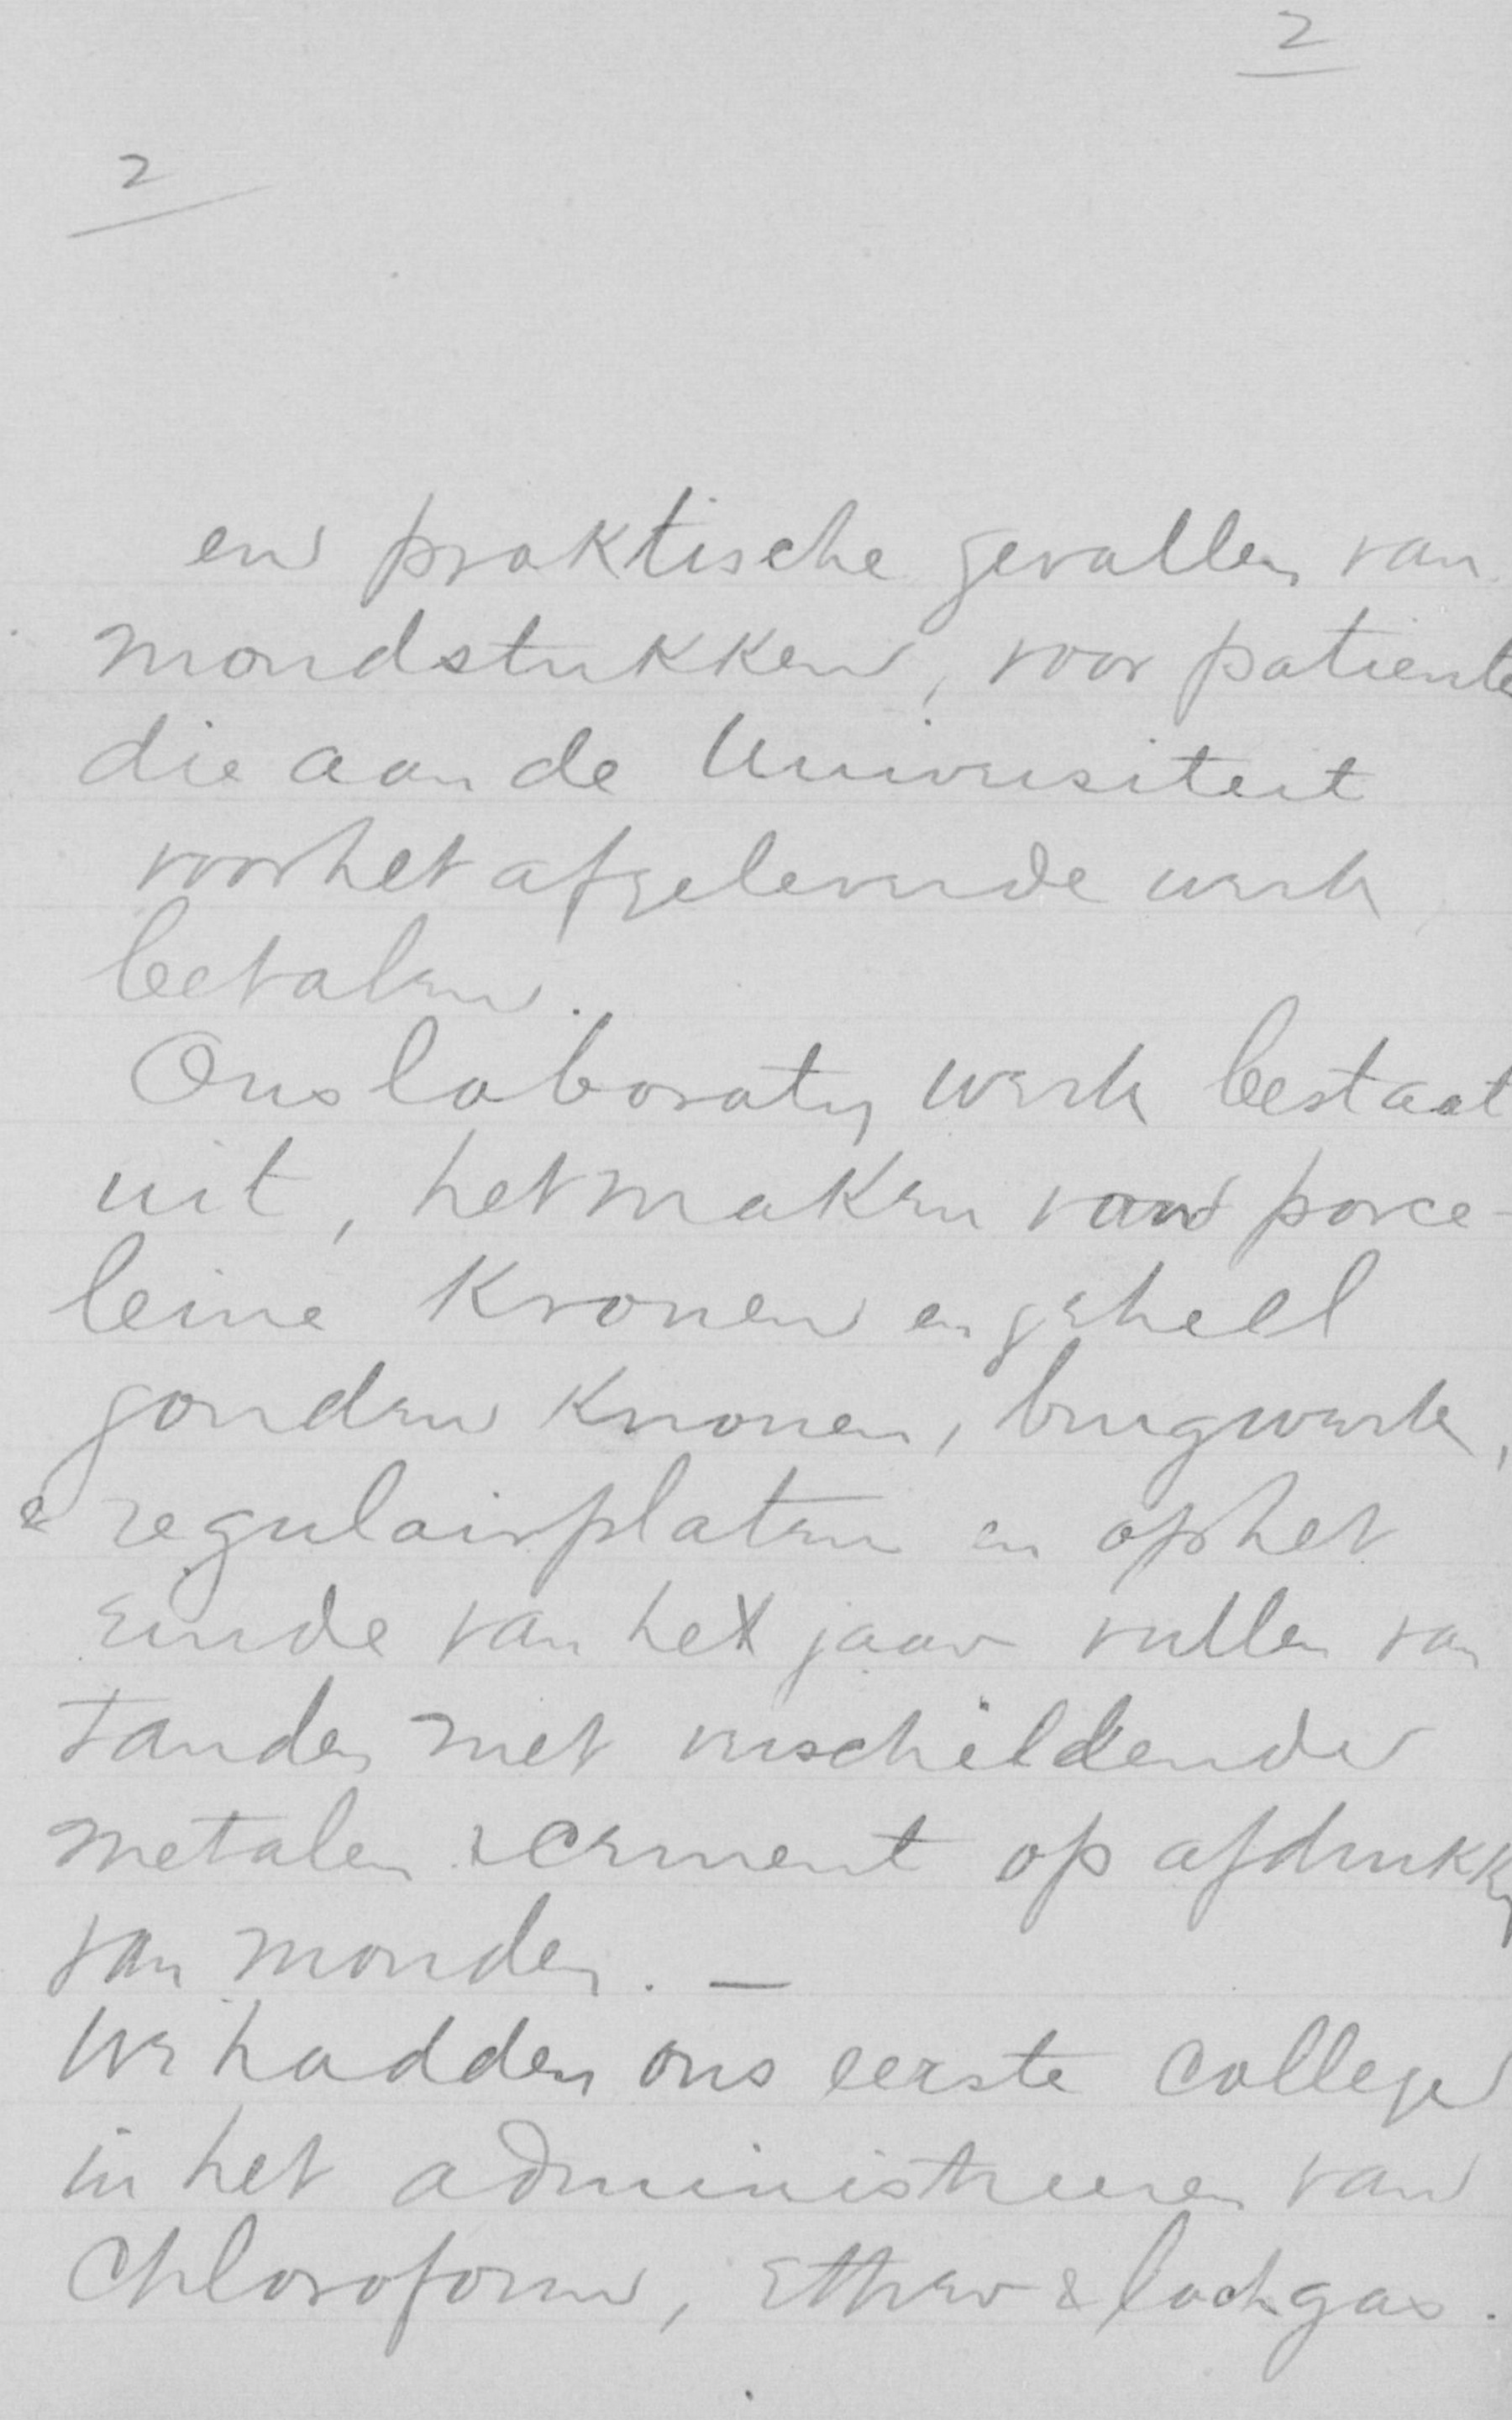 2
2
en praktische gevallen van
mondstukken, voor patiente
die aan de Universiteit
voor het afgeleverde werk
betalen.
Ons laboraty werk bestaat
uit, het maken van porce-
leine Kronen en geheel
gouden Kronen, brugwerk,
& regulairplaten en op het
einde van het jaar vullen van
tanden met verschillende
metalen & cement op afdrukken
van monden. —
We hadden ons eerste college
in het administreeren van
Chloroform, Ether & lachgas.